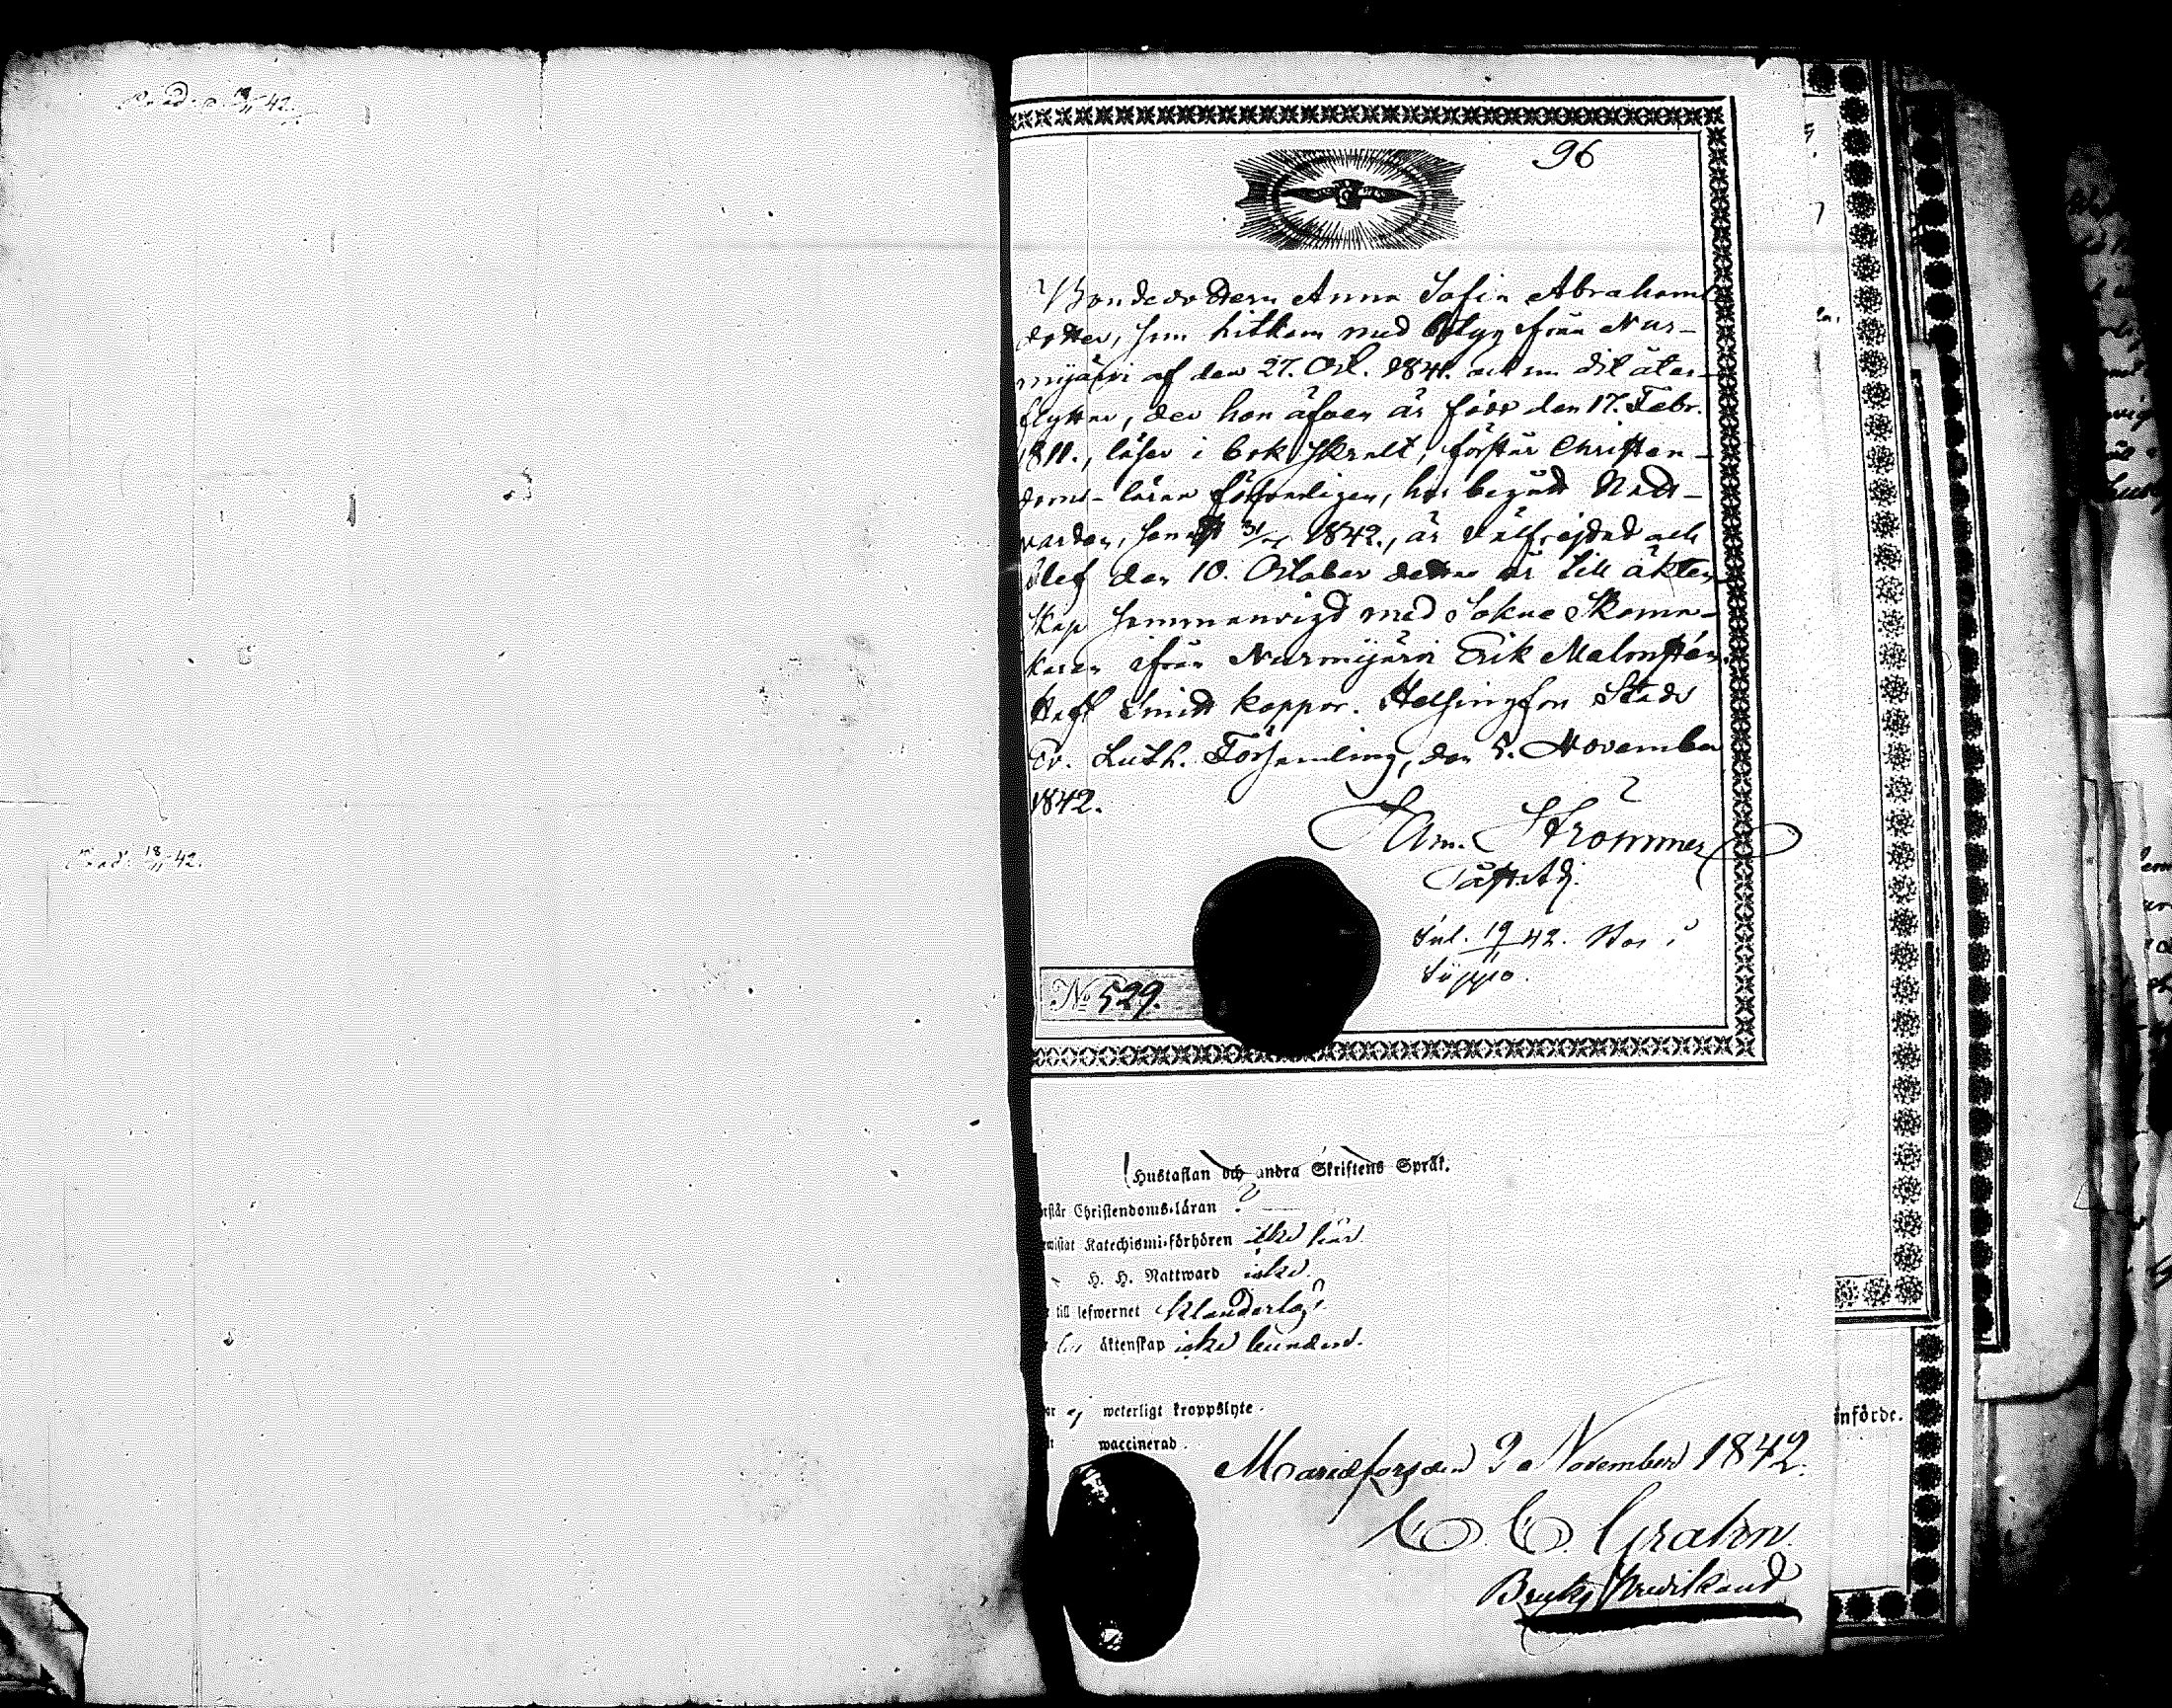 96
Bondedottern Anna Sofia Abrahams
dotter, som hitkom med betyg ifrån Nur-
mijärvi af den 27. Oct. 1841. och nu dit åter-
flyttar, der hon äfven är född den 17. Febr.
1811., läser i bok skralt, förstår Christen-
doms-läran försvarligen, har begått Natt-
varden, senast 1842., är välfrejdad och
blef den 10. October detta år till äkten-
skap sammanvigd med Sokne Skoma-
karen ifrån Nurmijärvi Erik Malmstén.
Haft Smitt koppor. Helsingfors Stads
Ev. Luth. Församling, den 5. November
1842.
Sam. Strömmer
Past. Adj.
Inl. 19/11 42.
No 529.
Hustaflan och andra Skriftens Språk.
Christendoms-läran
Katechismi-förhören icke här
H. H. Nattward icke.
till lefwernet Klanderlös
äktenskap icke bunden.
ej weterligt kroppslyte.
waccinerad.
Mariefors den 9 November 1842.
C. C. Grahn
Bruks Predikand
införde.